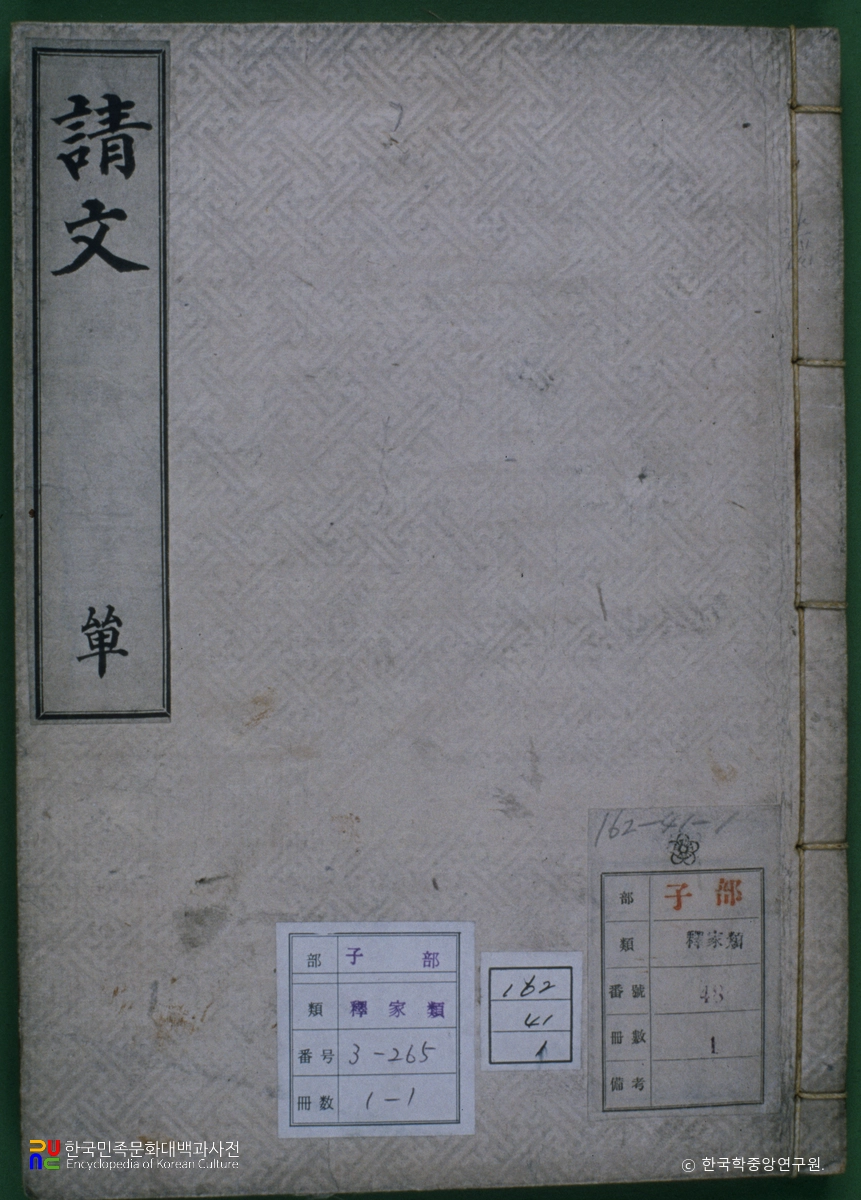 請文
單
部 子部
類 釋家類
番号 3-265
冊数 1-1
162
41
1
162-41-1
部 子部
類 釋家類
番號 48
冊數 1
備考
한국민족문화대백과사전
Encyclopedia of Korean Culture
ⓒ 한국학중앙연구원